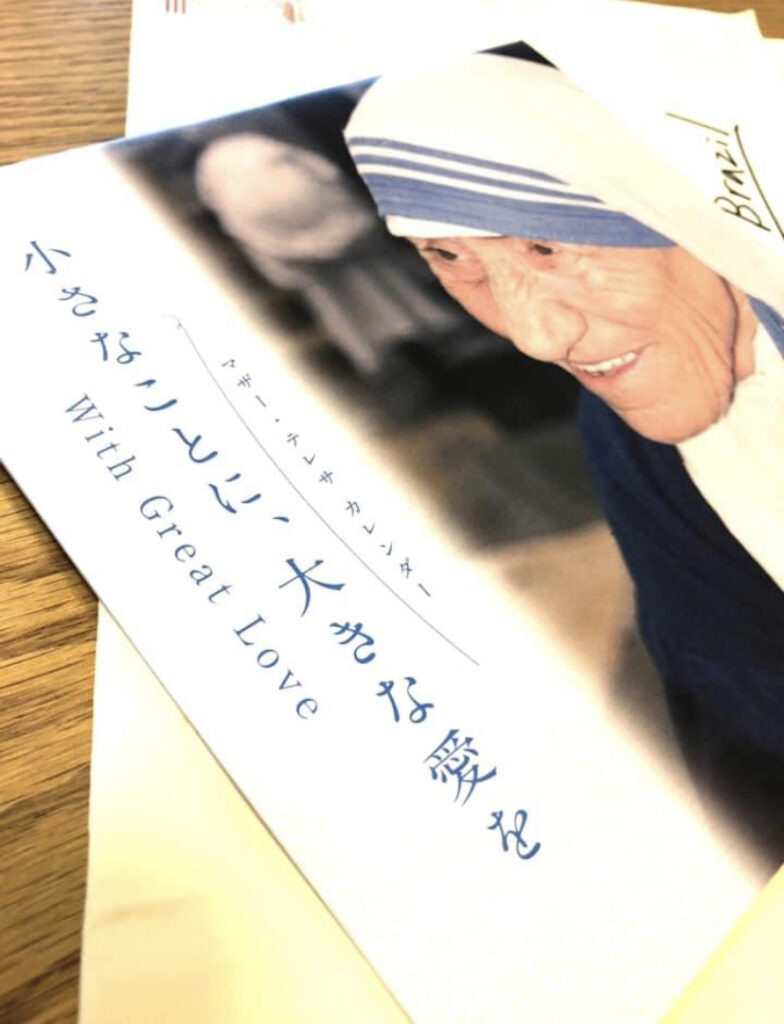 Brazil
マザー・テレサ カレンダー
小さなことに、大きな愛を
With Great Love